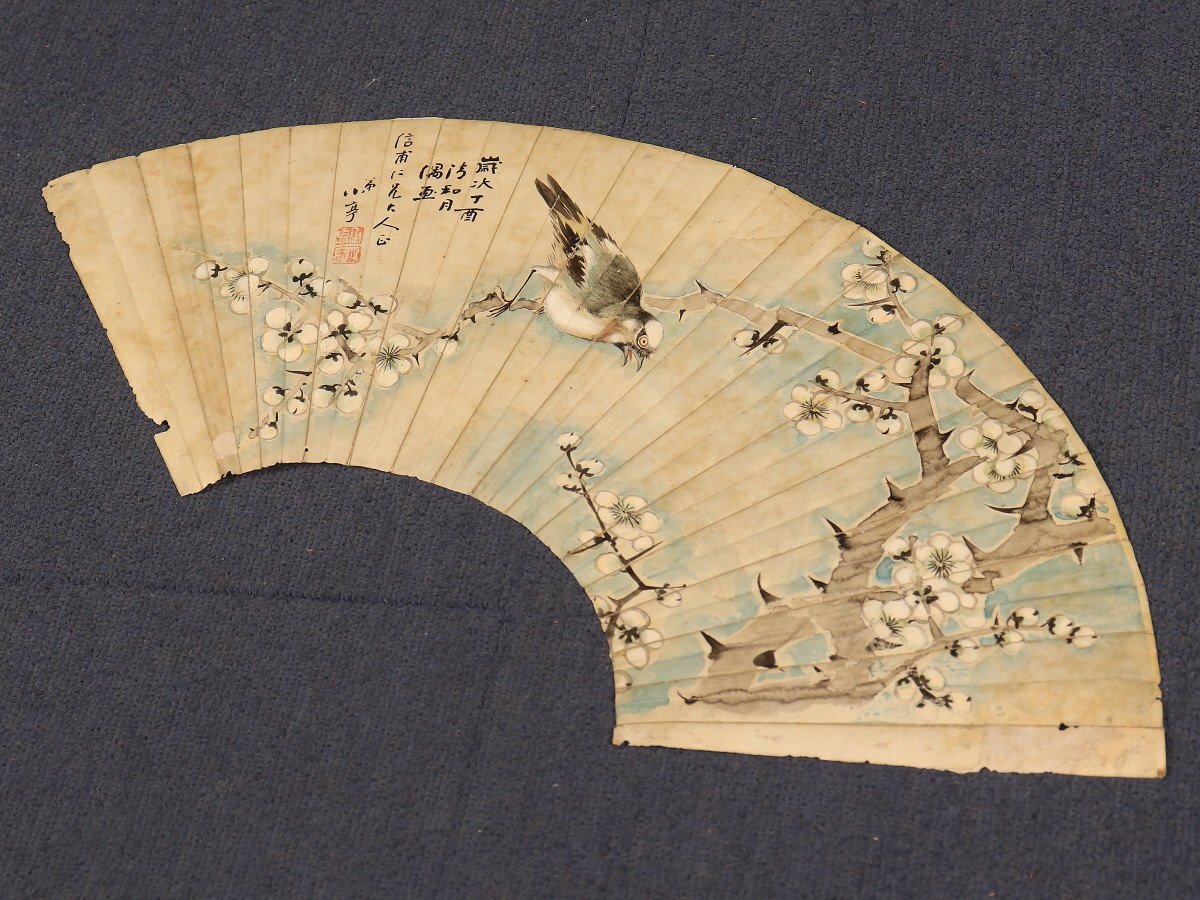 歲次丁酉
清和月
偶画
信甫仁兄大人正
弟小亭